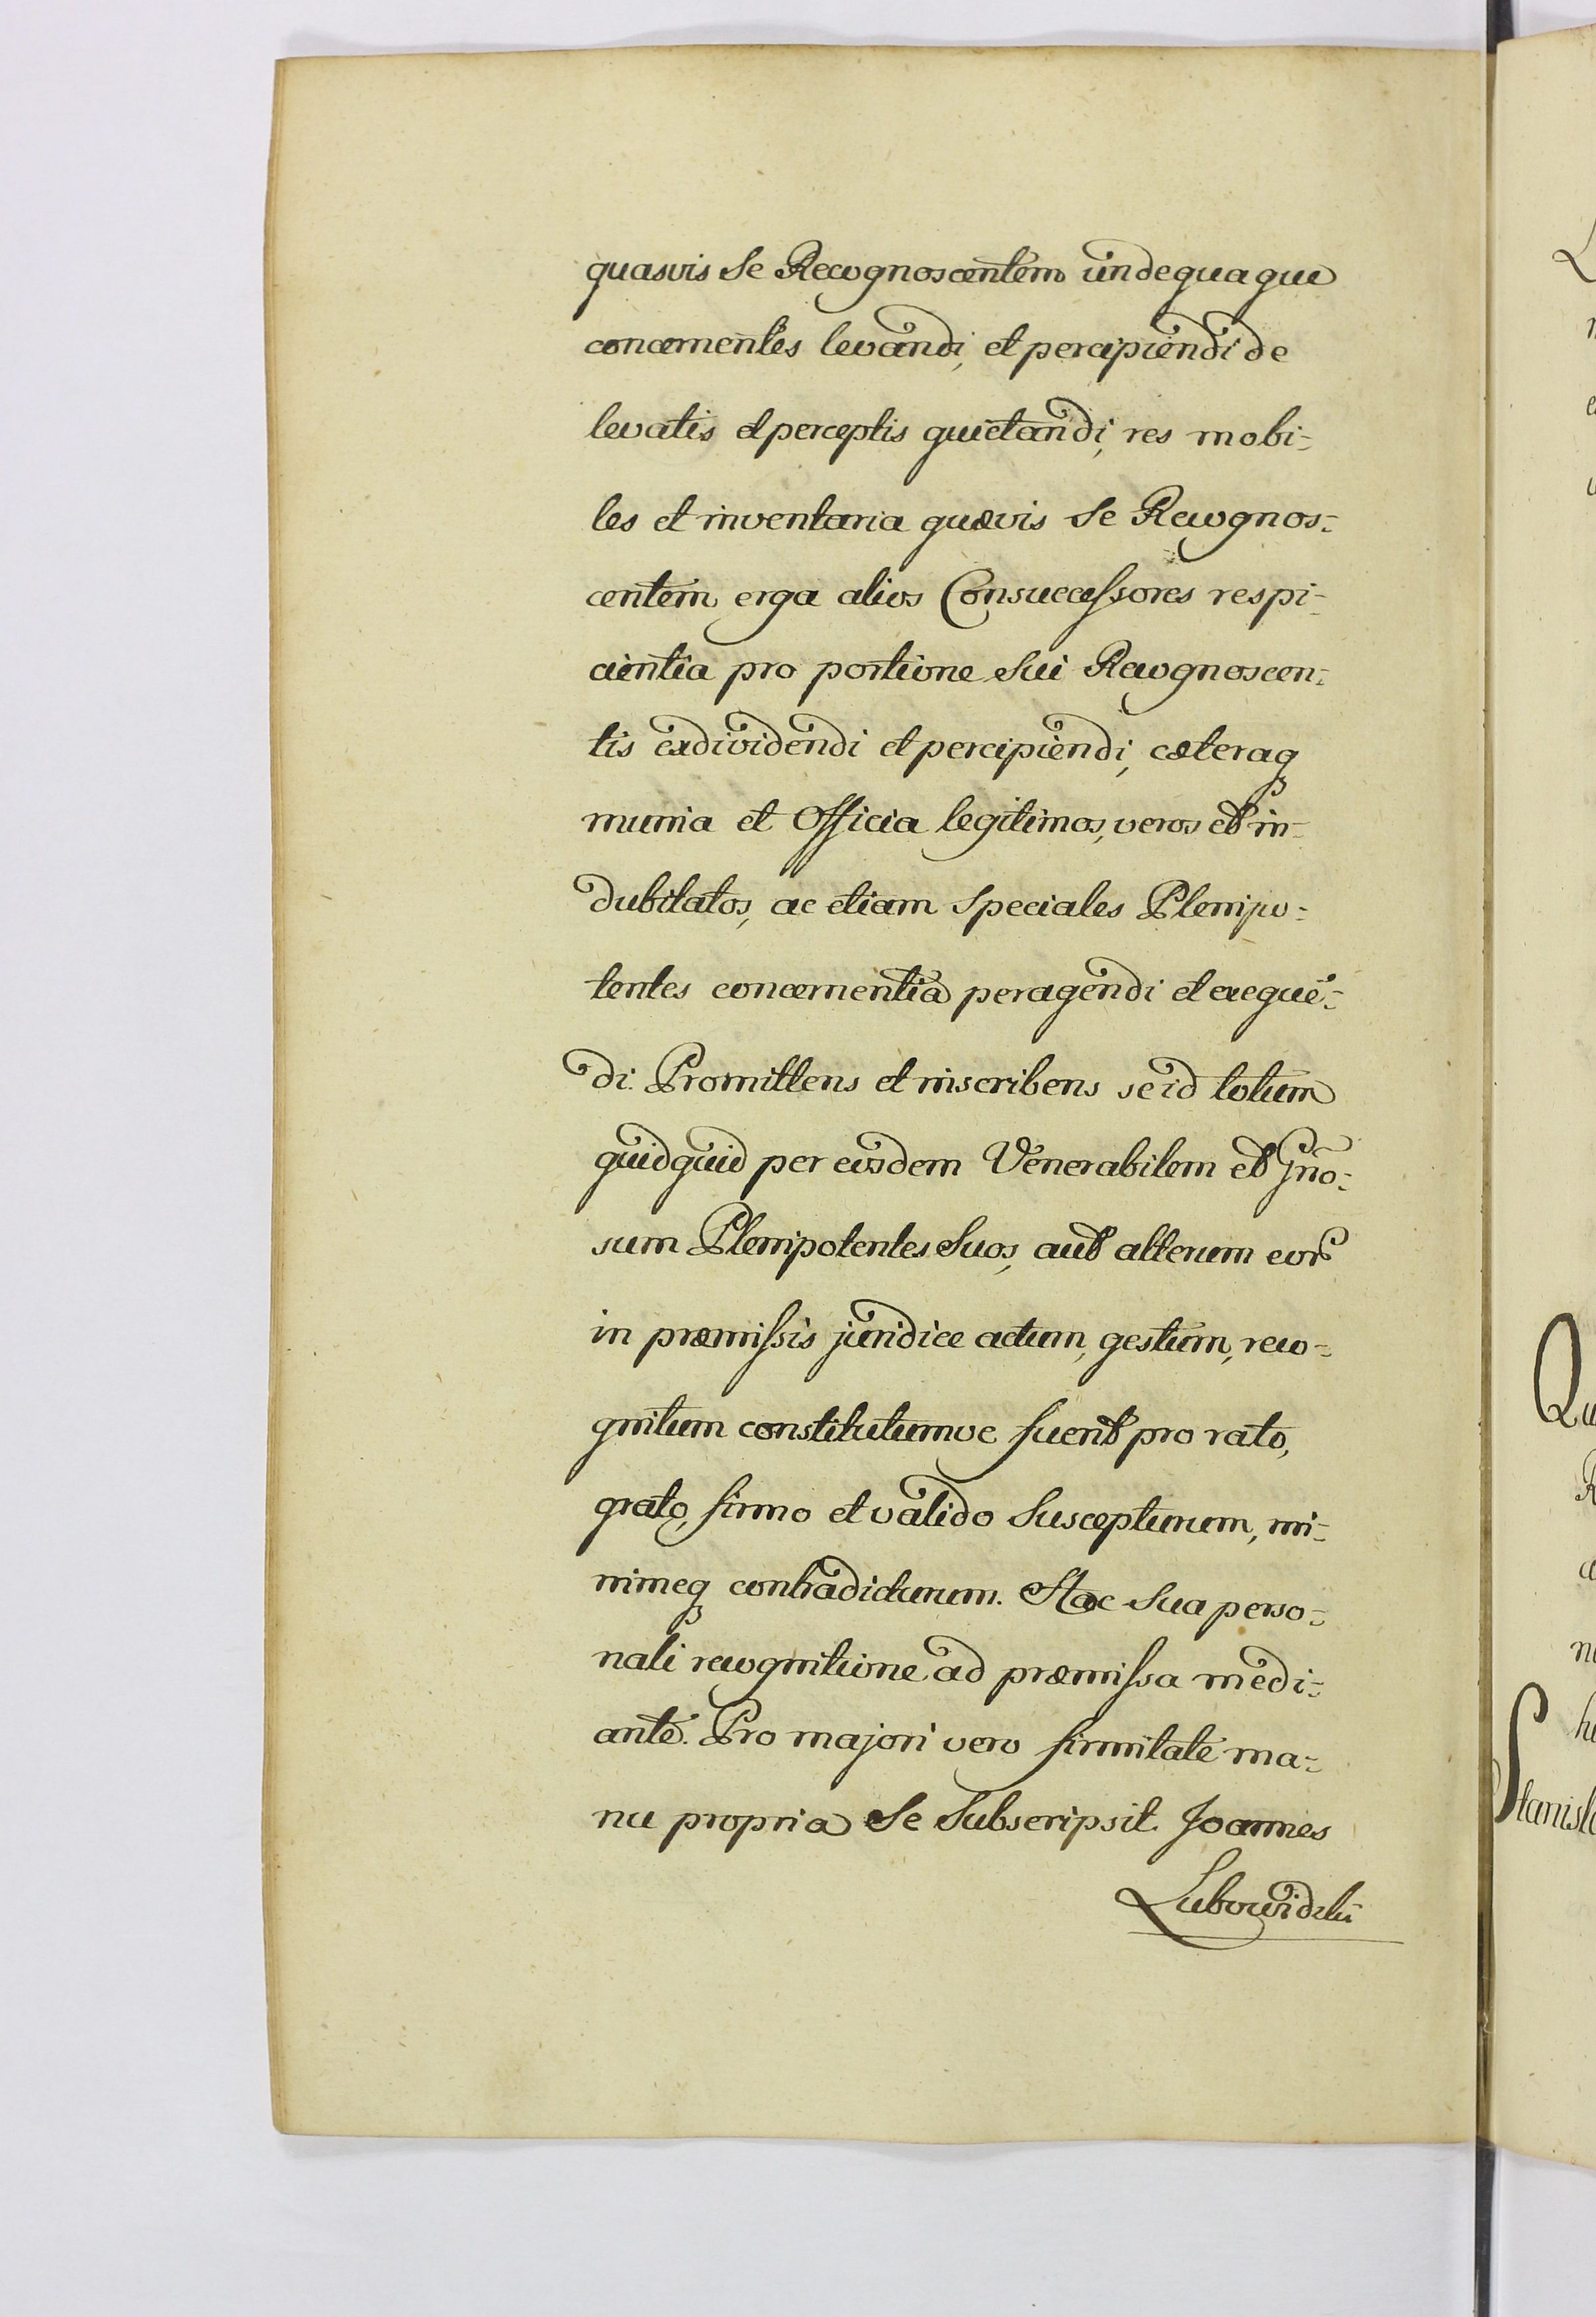 quasvis Se Recognoscentem undequaque
concernentes levandi, et percipiendi de
levatis et perceptis quietandi, res mobi-
les et inventaria quævis Se Recognos-
centem erga alios Consuccessores respi-
cientia pro portione Sui Recognoscen-
tis exdividendi et percipiendi, cæteraq
munia et Officia legitimos, veros et in-
dubitatos, ac etiam Speciales Plenipo-
tentes concernentia peragendi et exequē-
di. Promittens et inscribens se id totum
quidquid per eosdem Venerabilem et Gño-
sum Plenipotentes Suos, aut alterum eor
in præmissis juridice actum, gestum, reco-
gnitum constitutumve fuerit pro rato,
grato, firmo et valido Suscepturum, mi-
nimeq contradicturum. Hac Sua perso-
nali recognitione ad præmissa medi-
ante. Pro majori vero firmitate ma-
nu propria Se Subscripsit Joannes
Lubowidzki